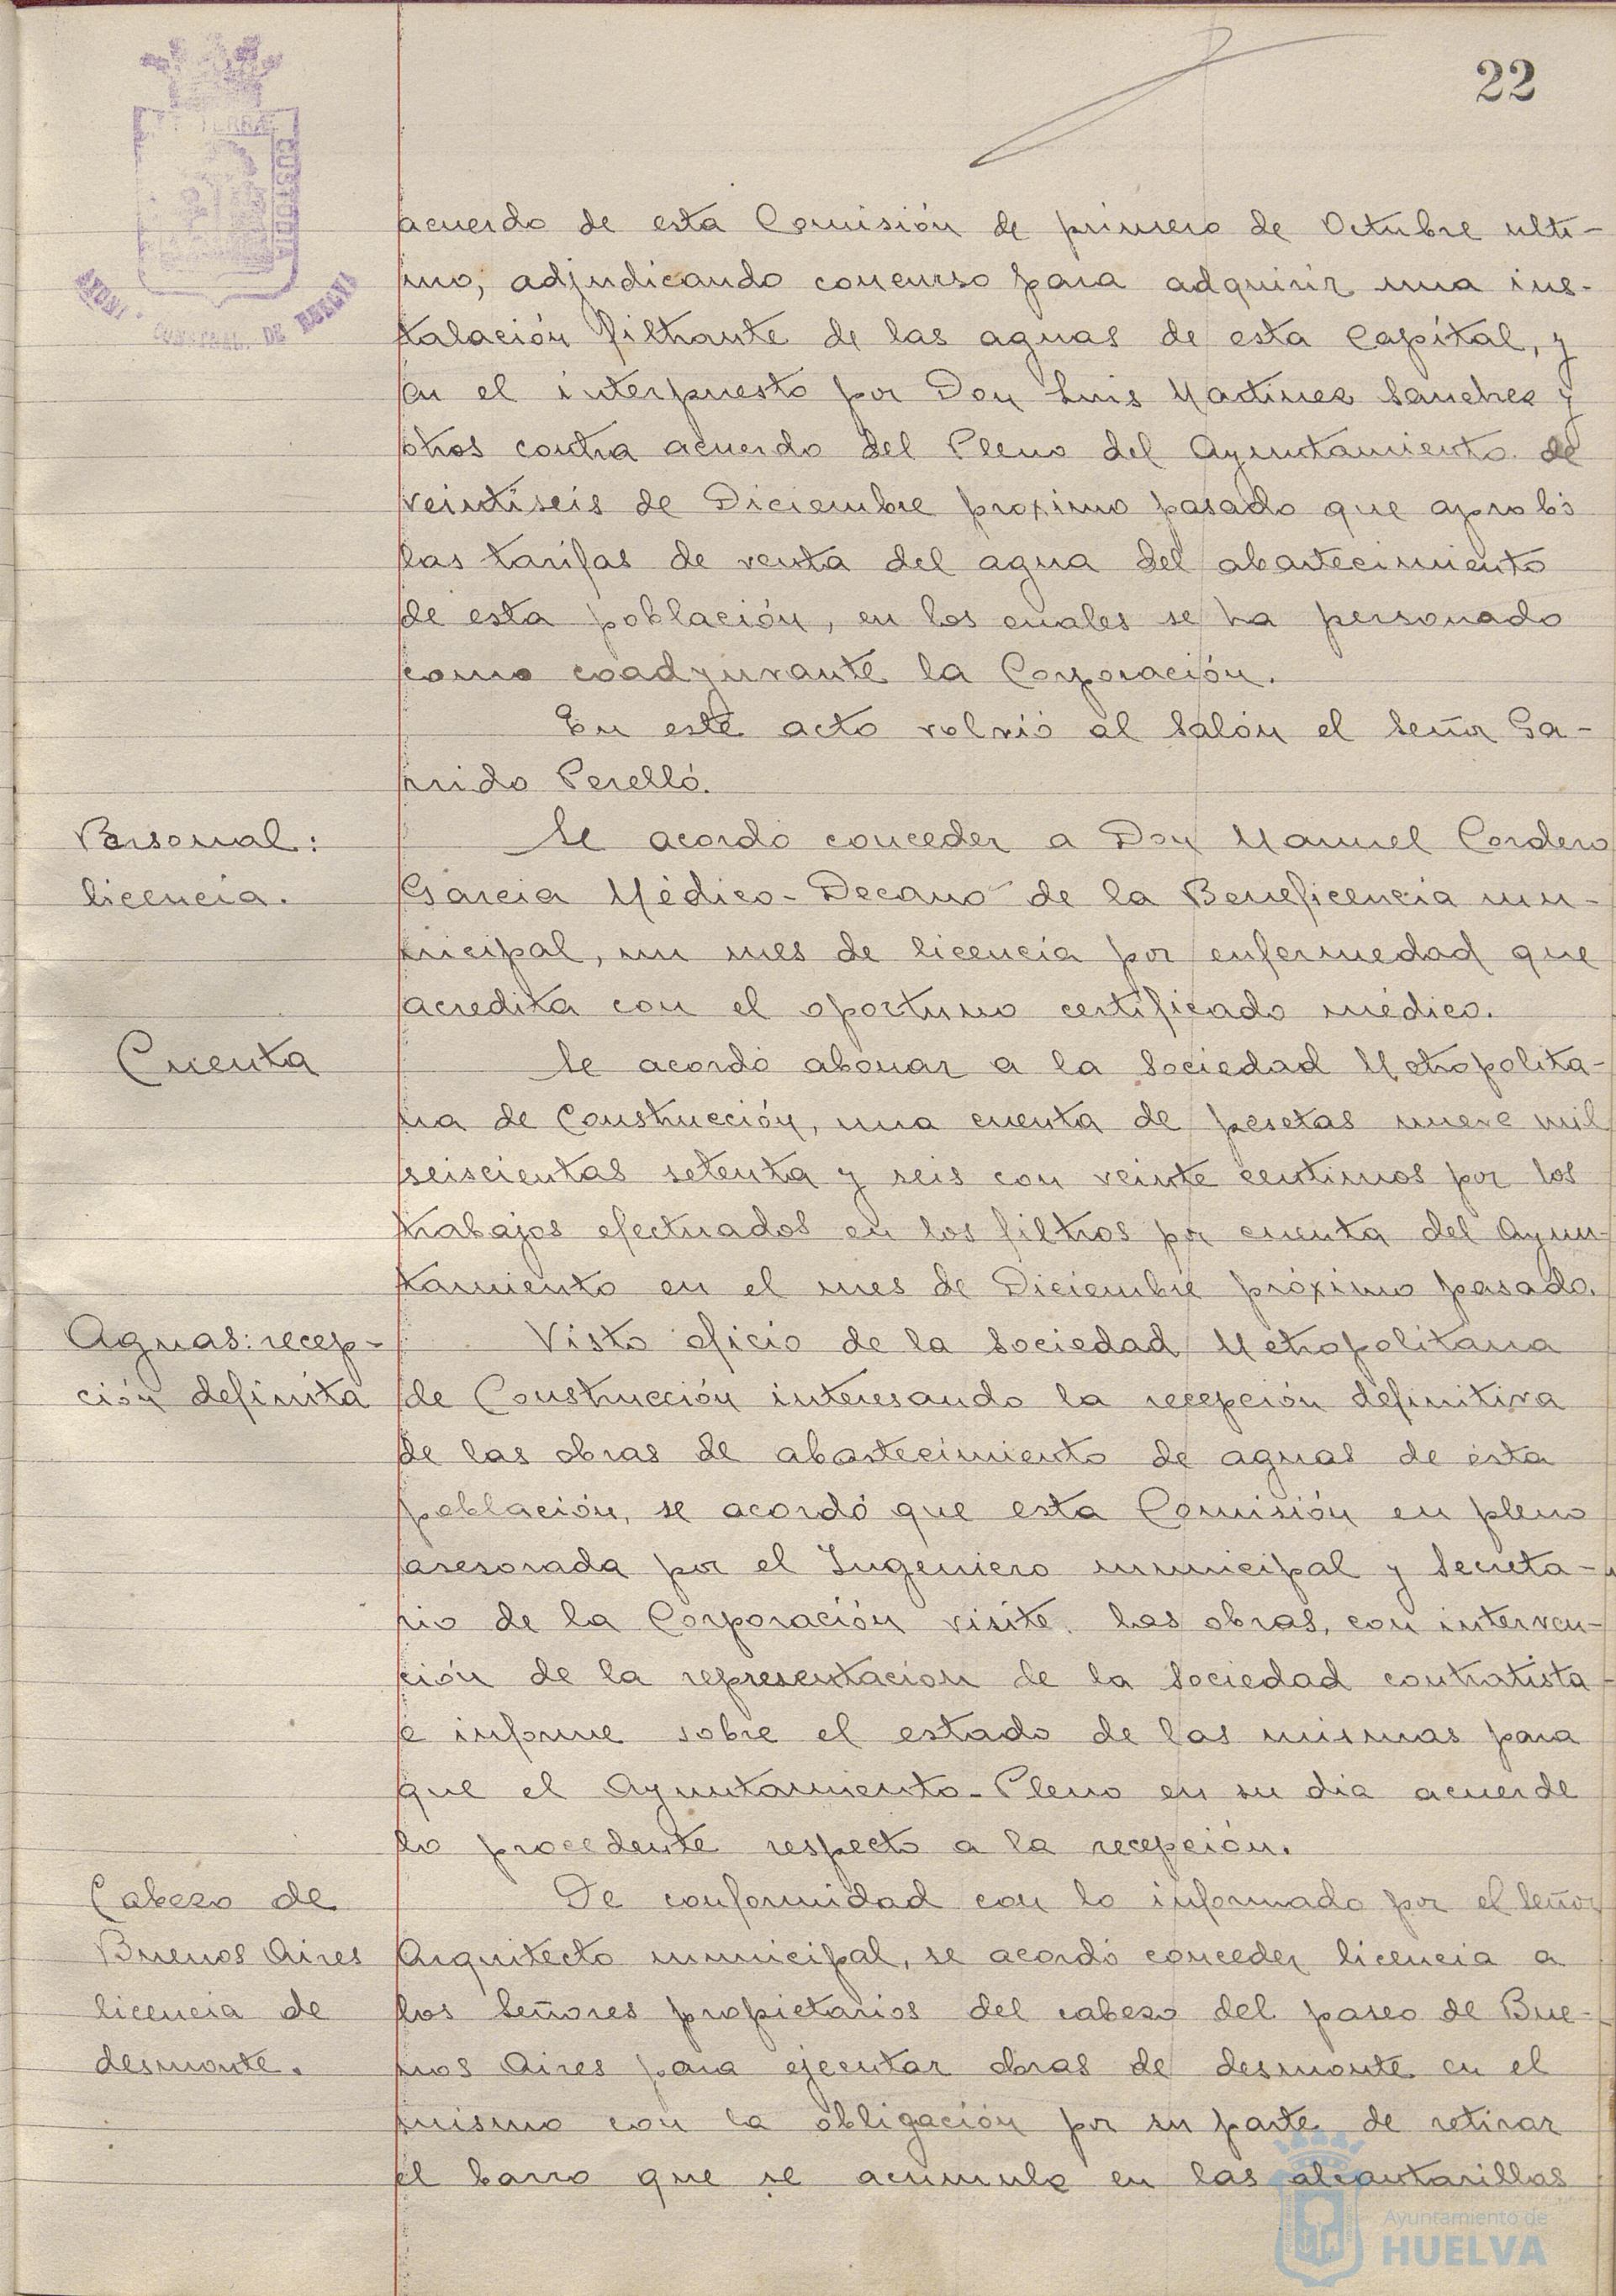 22
TERRAE
CUSTODIA
AYUNT. CONSTNAL. DE HUELVA
acuerdo de esta Comisión de primero de Octubre ulti-
mo, adjudicando concurso para adquirir una ins-
talación filtrante de las aguas de esta Capital, y
en el interpuesto por Don Luis Martinez Sanchez y
otros contra acuerdo del Pleno del Ayuntamiento de
veintiseis de Diciembre proximo pasado que aprobó
las tarifas de venta del agua del abastecimiento
de esta población, en los cuales se ha personado
como coadyuvante la Corporación.
En este acto volvió al Salón el Señor Ga-
rrido Perelló.
Personal:
licencia.
Se acordó conceder a Don Manuel Cordero
Garcia Médico-Decano de la Beneficencia mu-
nicipal, un mes de licencia por enfermedad que
acredita con el oportuno certificado médico.
Cuenta
Se acordó abonar a la Sociedad Metropolita-
na de Construcción, una cuenta de pesetas nueve mil
seiscientas setenta y seis con veinte centimos por los
trabajos efectuados en los filtros por cuenta del Ayun-
tamiento en el mes de Diciembre próximo pasado.
Aguas: recep-
ción definita
Visto oficio de la Sociedad Metropolitana
de Construcción interesando la recepción definitiva
de las obras de abastecimiento de aguas de ésta
población, se acordó que esta Comisión en pleno
asesorada por el Ingeniero municipal y Secreta-
rio de la Corporación visite las obras, con interven-
ción de la representación de la Sociedad contratista
e informe sobre el estado de las mismas para
que el Ayuntamiento-Pleno en su dia acuerde
lo procedente respecto a la recepción.
Cabezo de
Buenos Aires
licencia de
desmonte.
De conformidad con lo informado por el Señor
Arquitecto municipal, se acordó conceder licencia a
los Señores propietarios del cabezo del paseo de Bue-
nos Aires para ejecutar obras de desmonte en el
mismo con la obligación por su parte de retirar
el barro que se acumule en las alcantarillas
Ayuntamiento de
HUELVA